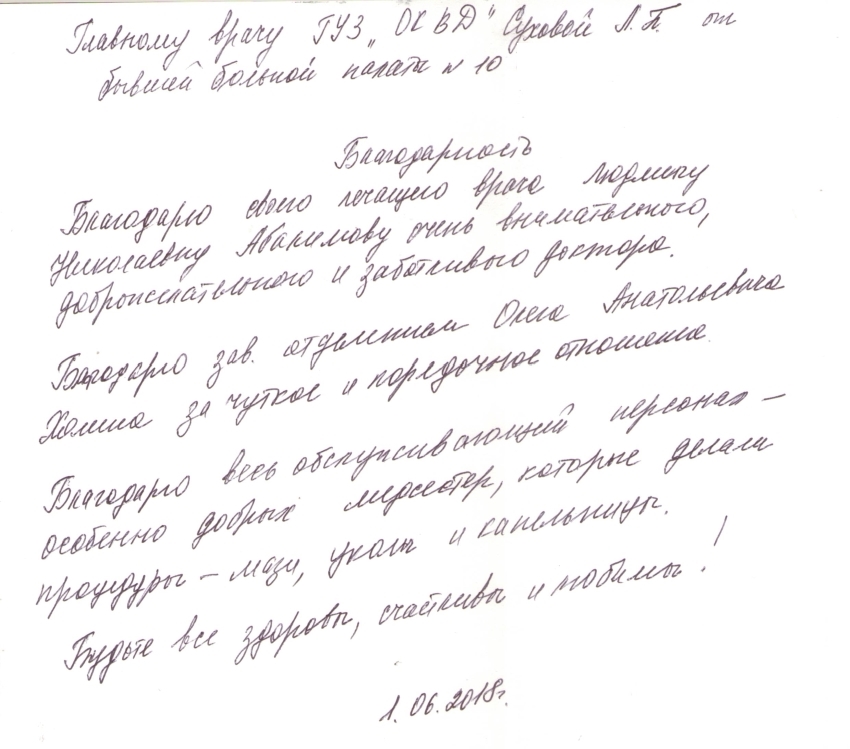 Главному врачу ГУЗ „ОКВД" Суховой Л.П. от
бывшей больной палаты № 10
Благодарность
Благодарю своего лечащего врача Людмилу
Николаевну Абакимову очень внимательного,
доброжелательного и заботливого доктора.
Благодарю зав. отделением Олега Анатольевича
Хомина за чуткое и порядочное отношение.
Благодарю весь обслуживающий персонал –
особенно добрых медсестер, которые делали
процедуры – мази, уколы и капельницы.
Будьте все здоровы, счастливы и любимы!
1.06.2018г.